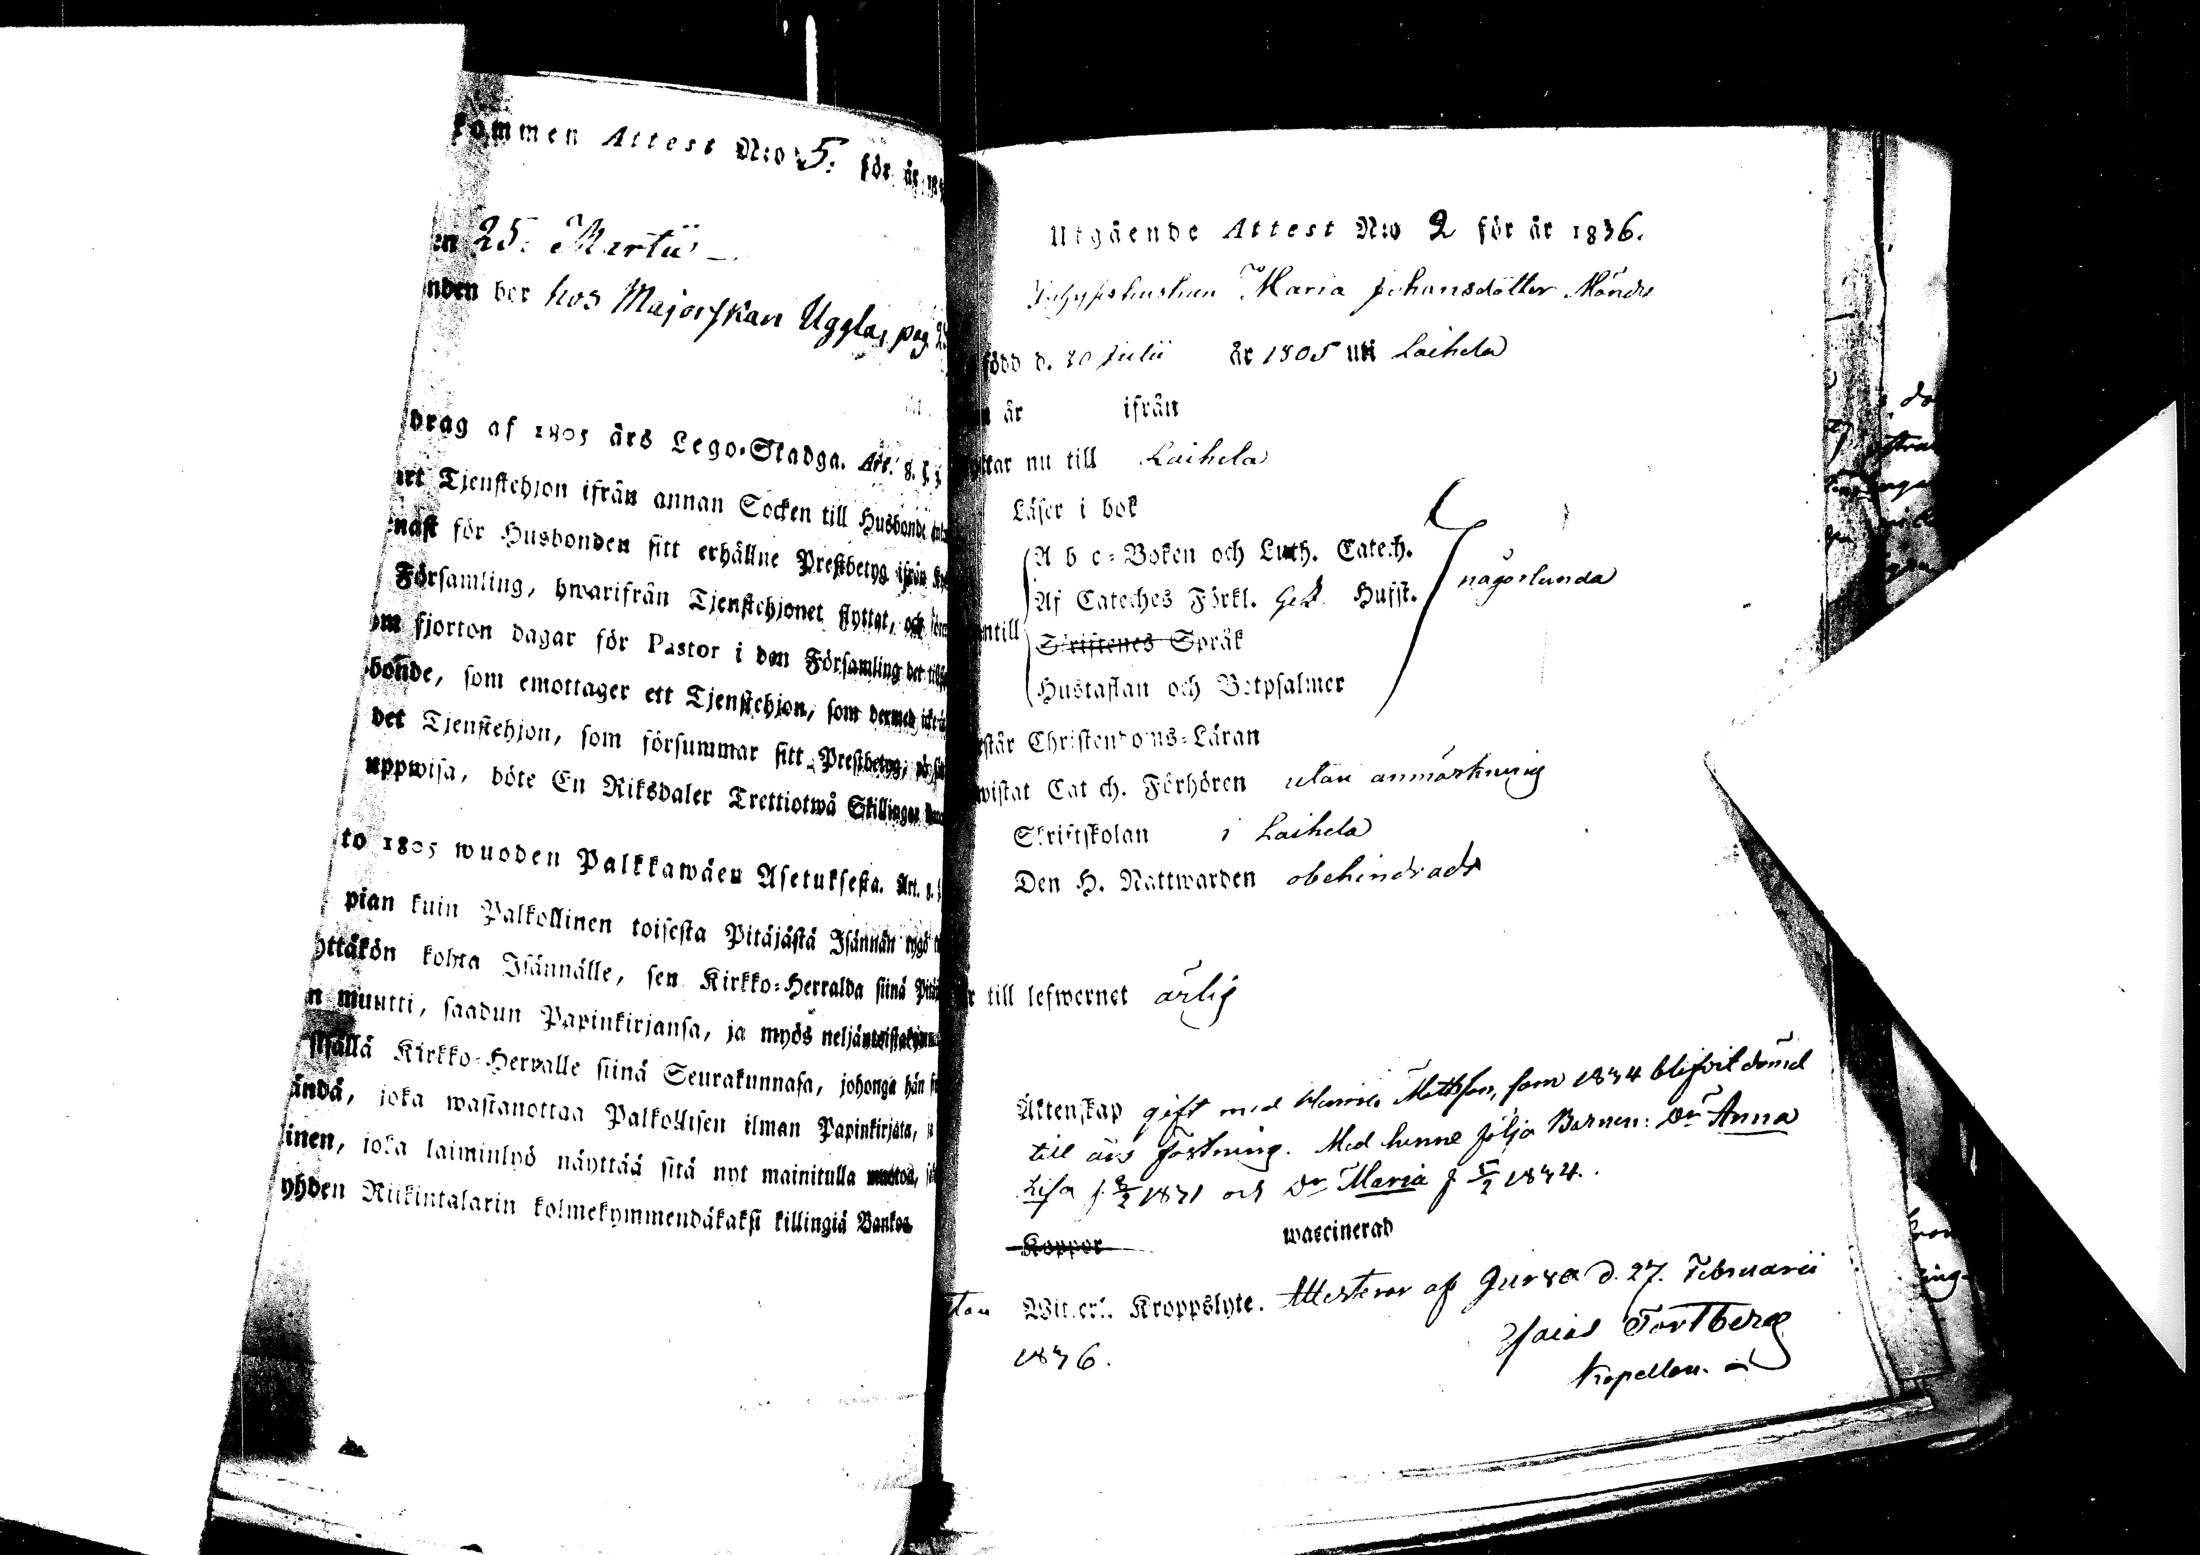 kommen Attest N:o 5. för år 183
en 25: Martii
nden bor hos Majorskan Ugglas, pag.
drag af 1805 års Lego-Stadga. Art. 8. §. 3.
urt Tjenstehjon ifrån annan Socken till Husbonde
nast för Husbonden sitt erhållne Prestbetyg ifrån
Församling, hwarifrån Tjenstehjonet flyttat, och
om fjorton dagar för Pastor i den Församling der
sbonde, som emottager ett Tjenstehjon, som dermed icke
det Tjenstehjon, som försummar sitt Prestbetyg, på
uppwisa, böte En Riksdaler Trettiotwå Skillingar
to 1805 wuoden Palkkawäen Asetuksesta. Art. 8.
pian kuin Palkollinen toisesta Pitäjästä Isännän tygö
yttäkön kohta Isännälle, sen Kirkko-Herralda siinä
n muutti, saadun Papinkirjansa, ja myös
sisällä Kirkko-Herralle siinä Seurakunnasa, johonga hän
ändä, joka wastanottaa Palkollisen ilman Papinkirjata,
linen, joka laiminlyö näyttää sitä nyt mainitulla muotoa,
yhden Riikintalarin kolmekymmendäkaksi killingiä Bankos
Utgående Attest N:o 2 för år 1836.
Maria Johansdotter
född d. 20 Julii år 1805 uti Laihela
år ifrån
yttar nu till Laihela
Läser i bok
Abc-Boken och Luth. Catech.
Af Cateches Förkl. Hufst. någorlunda
antill Skriftenes Språk
Hustaflan och Botpsalmer
rstår Christendoms-Läran
wistat Catech. Förhören utan anmärkning
Skriftskolan i Laihela
Den H. Nattwarden obehindrad
r till lefwernet ärlig
Äktenskap gift med Mattsson, som 1834 blifvit dömd
till års fästning. Med henne följa Barnen: Dr Anna
Lisa f. 8/2 1831 och Dr Maria f. 5/2 1834.
Koppor waccinerad
tan Witterl. Kroppslyte. Attesterar af Jurva d. 27. Februarii
1836. Esaias Tortberg
Kapellan.